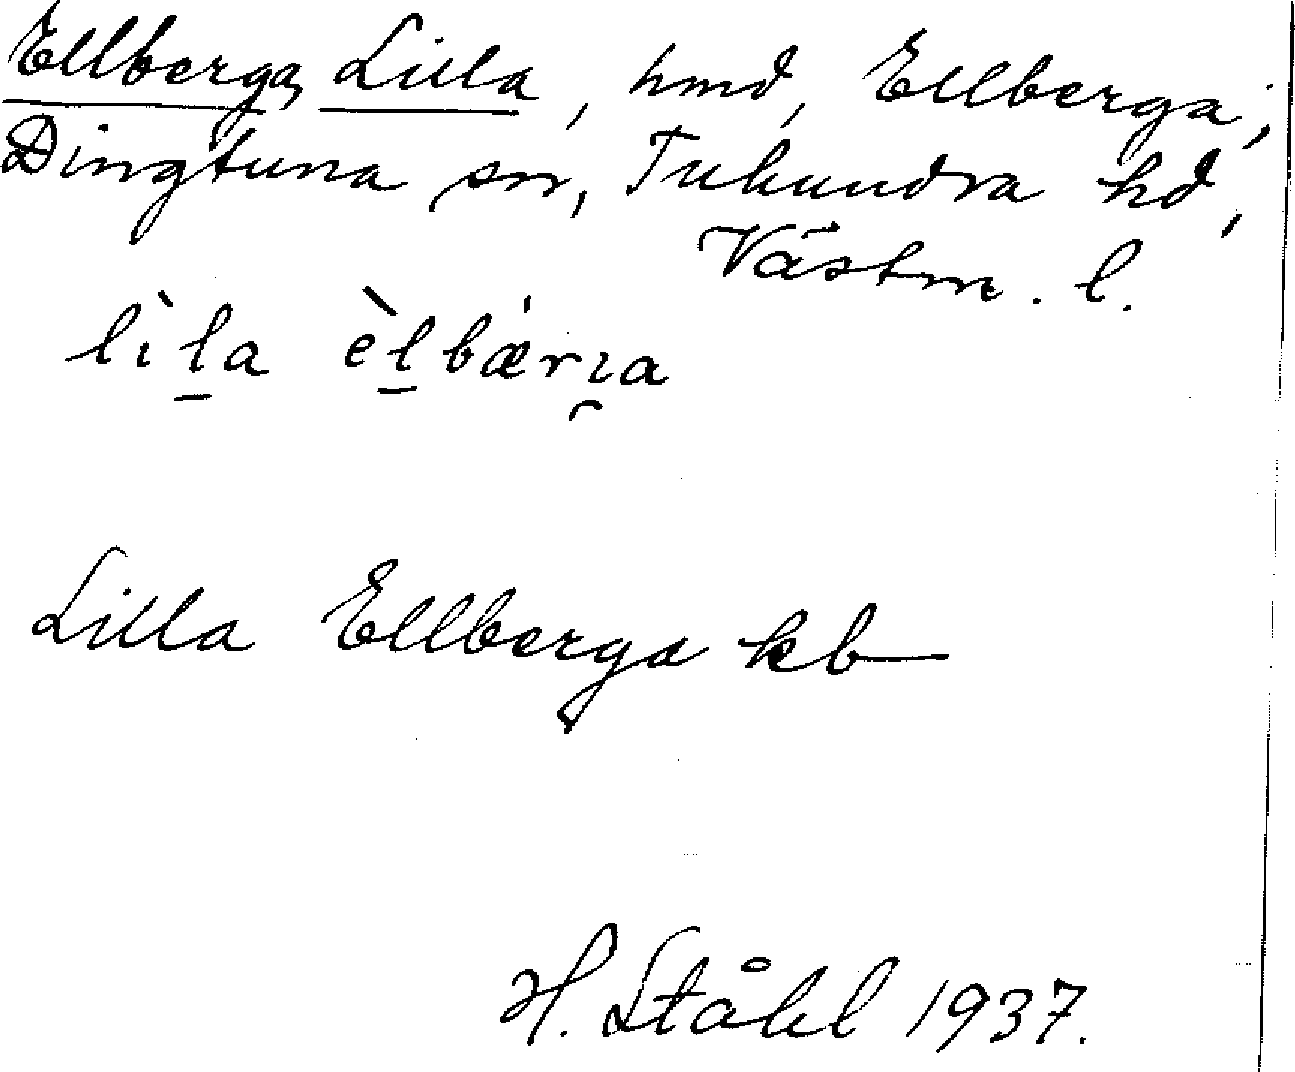 Ellberga, Lilla, hmd, Ellberga,
Dingtuna sn, Tuhundra hd,
Västm. l.
lìl̠a èl̠bæ̀rı̯a
Lilla Ellberga kb
H. Ståhl 1937.